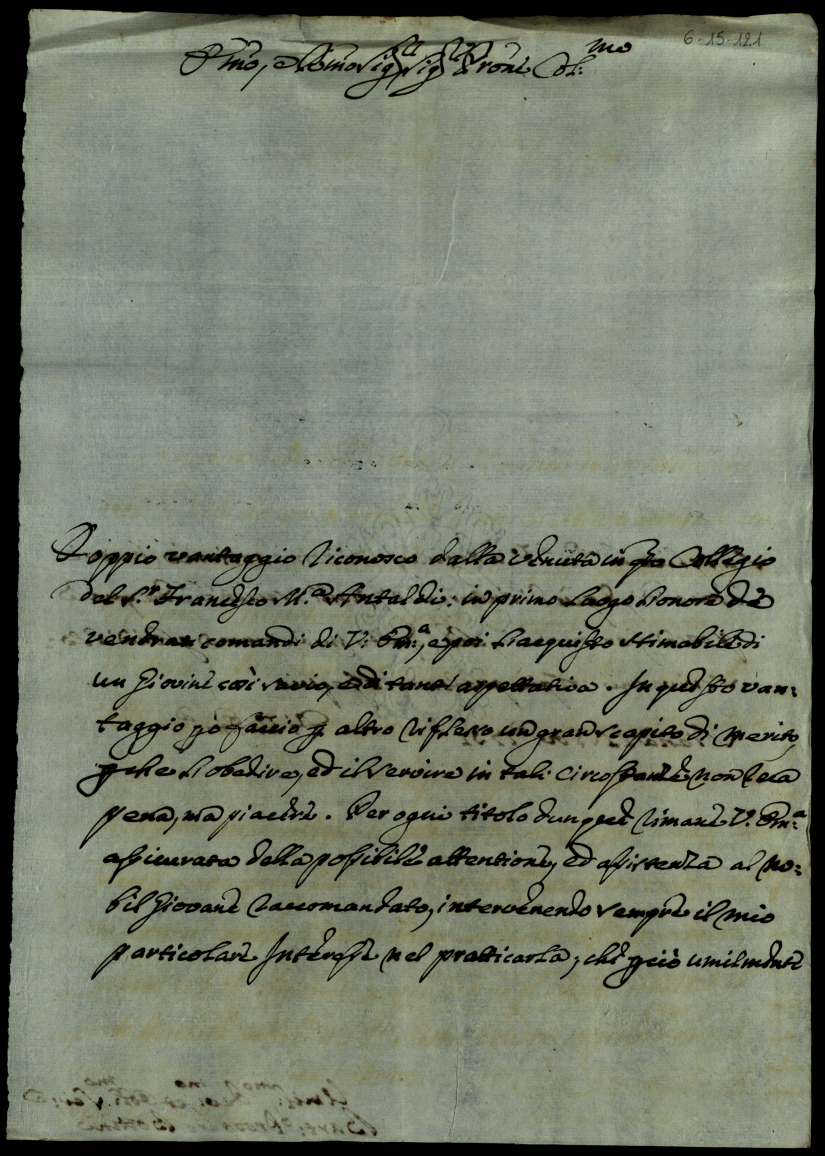 6-15-121
Em̃o, e Rmo Sig.r Sig.r Prone Col:mo
Doppio vantaggio riconosco dalla venuta in qto Collegio
del S.r Francesco M.a Antaldi: in primo luogo l'onore de
venerati comandi di V: Em:a, e poi l'acquisto stimabile di
un Giovine così savio, e di tant'aspettativa. In questo van:
taggio però faccio p altro riflesso un gran scapito di merito,
pche l'obedire, ed il servire in tali circostanze non reca
pena, ma piacere. Per ogni titolo dunque rimane V. Em:a
assicurata della possibile attentione, ed assistenza al No:
bil Giovane raccomandato, intervenendo sempre il mio
particolare Interesse nel pratticarla; che pciò umilmente